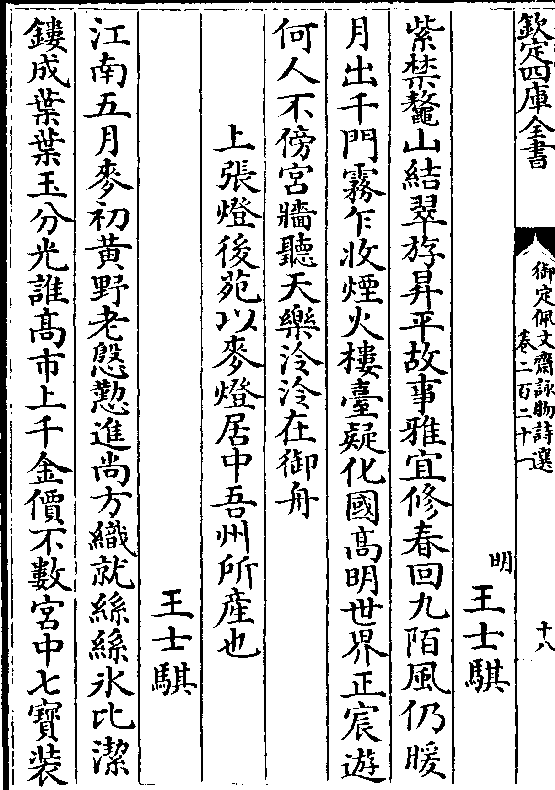 欽定四庫全書
御定佩文齋詠物詩選
卷二百二十一
十八
明
王士騏
紫禁鼇山結翠斿昇平故事雅宜修春回九陌風仍暖
月出千門霧乍收煙火樓臺疑化國高明世界正宸遊
何人不傍宮牆聽天樂泠泠在御舟
上張燈後苑以麥燈居中吾州所産也
王士騏
江南五月麥初黃野老慇懃進尚方織就絲絲氷比潔
鏤成葉葉玉分光誰髙市上千金價不數宮中七寶裝